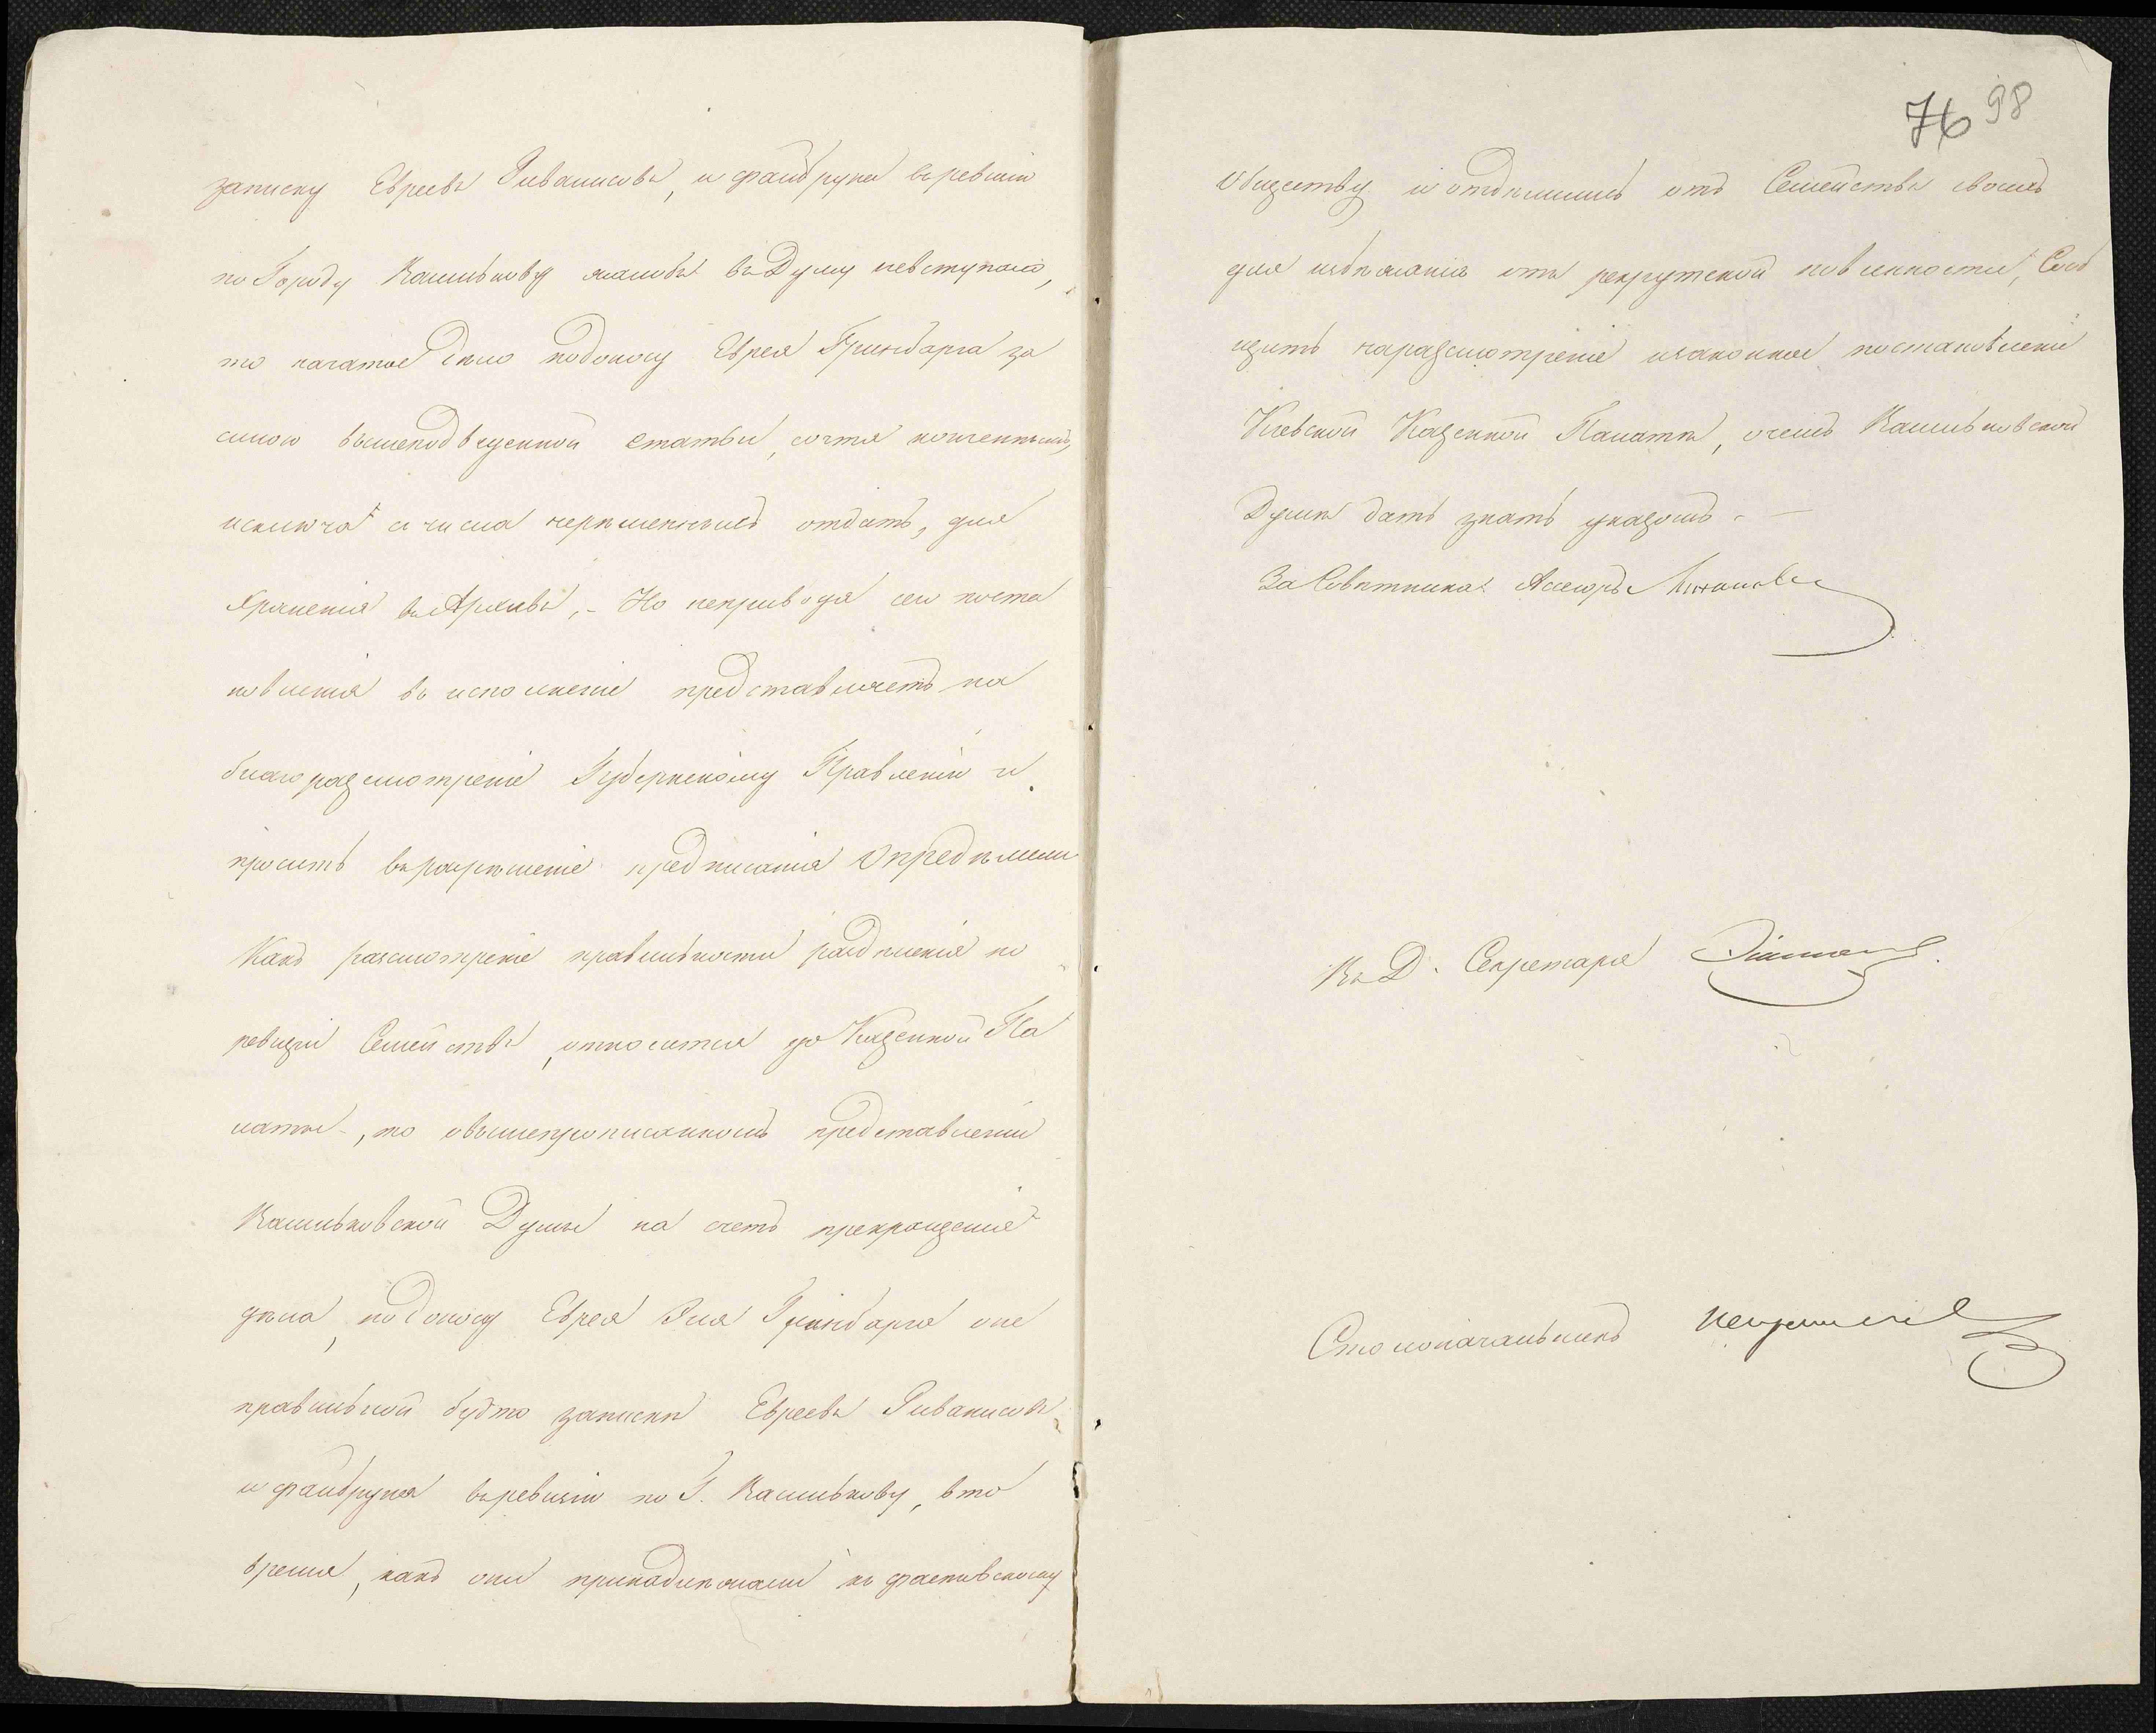 записку Евреевъ и файбруна въ ревизію
по Городу Василькову жалобы въ Думу невступало,
то начатое дѣло подоносу Еврея Гринбарга за
силою вышеподведенной статьи, сочтя конченнымъ,
исключа с числа нерѣшенныхъ отдать, для
храненія въ Архивъ, - Но неприводя сего поста
новленія въ исполненіе представляетъ на
благоразсмотреніе Губернскому Правленію и
проситъ въразрѣшеніе предписанія Опредѣлили
Какъ разсмотреніе правильности раздѣленія по
ревизіи Семействъ, относится до Казенной Па
латы, то овышепрописанномъ представленіи
Васильковской Думы на счетъ прекращенія
дѣла, подоносу Еврея Эля Гринбарга оне
правильной будто записки Евреевъ
и файбруна въревизію по Г. Василькову, в то
время, какъ они принадлежали къ фастовскому
76 98
Обществу и отдѣлились отъ Семействъ своихъ
для избѣжанія отъ рекрутской повинности, Сооб
щить наразсмотреніе изаконное постановленіе
Кіевской Казенной Палатѣ, очемъ Васильковской
Думѣ дать знать указомъ. —
За Совѣтника Ассесоръ
Въ Д. Секретаря
Столоначальникъ